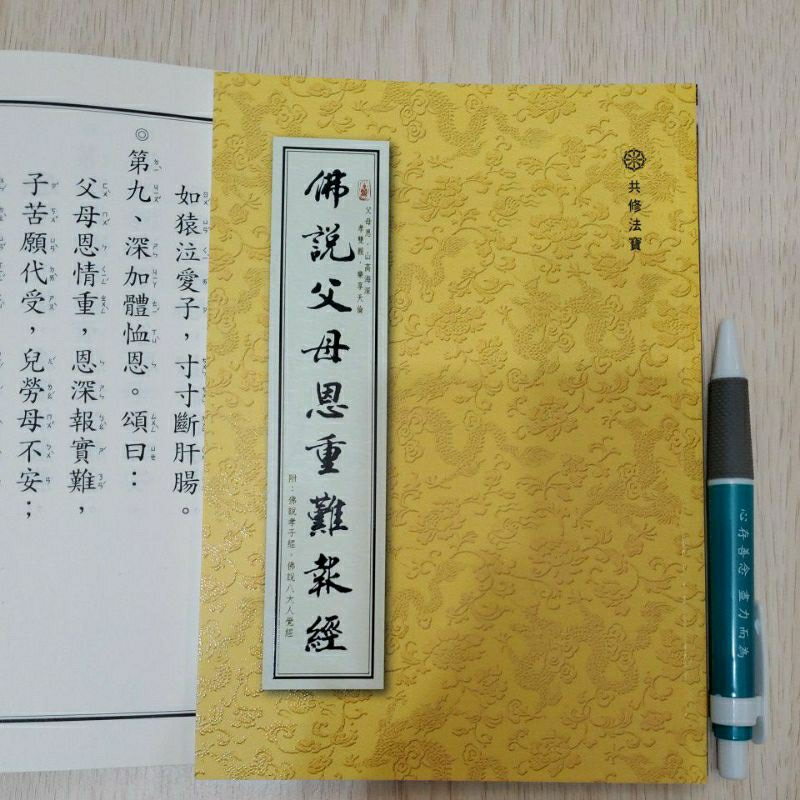 共修法寶
父母恩．山高海深
孝雙親．樂享天倫
佛說父母恩重難報經
附：佛說孝子經．佛說八大人覺經
如猿泣愛子，寸寸斷肝腸。
◎第九、深加體恤恩。頌曰：
父母恩情重，恩深報實難，
子苦願代受，兒勞母不安；
心存善念 盡力而為